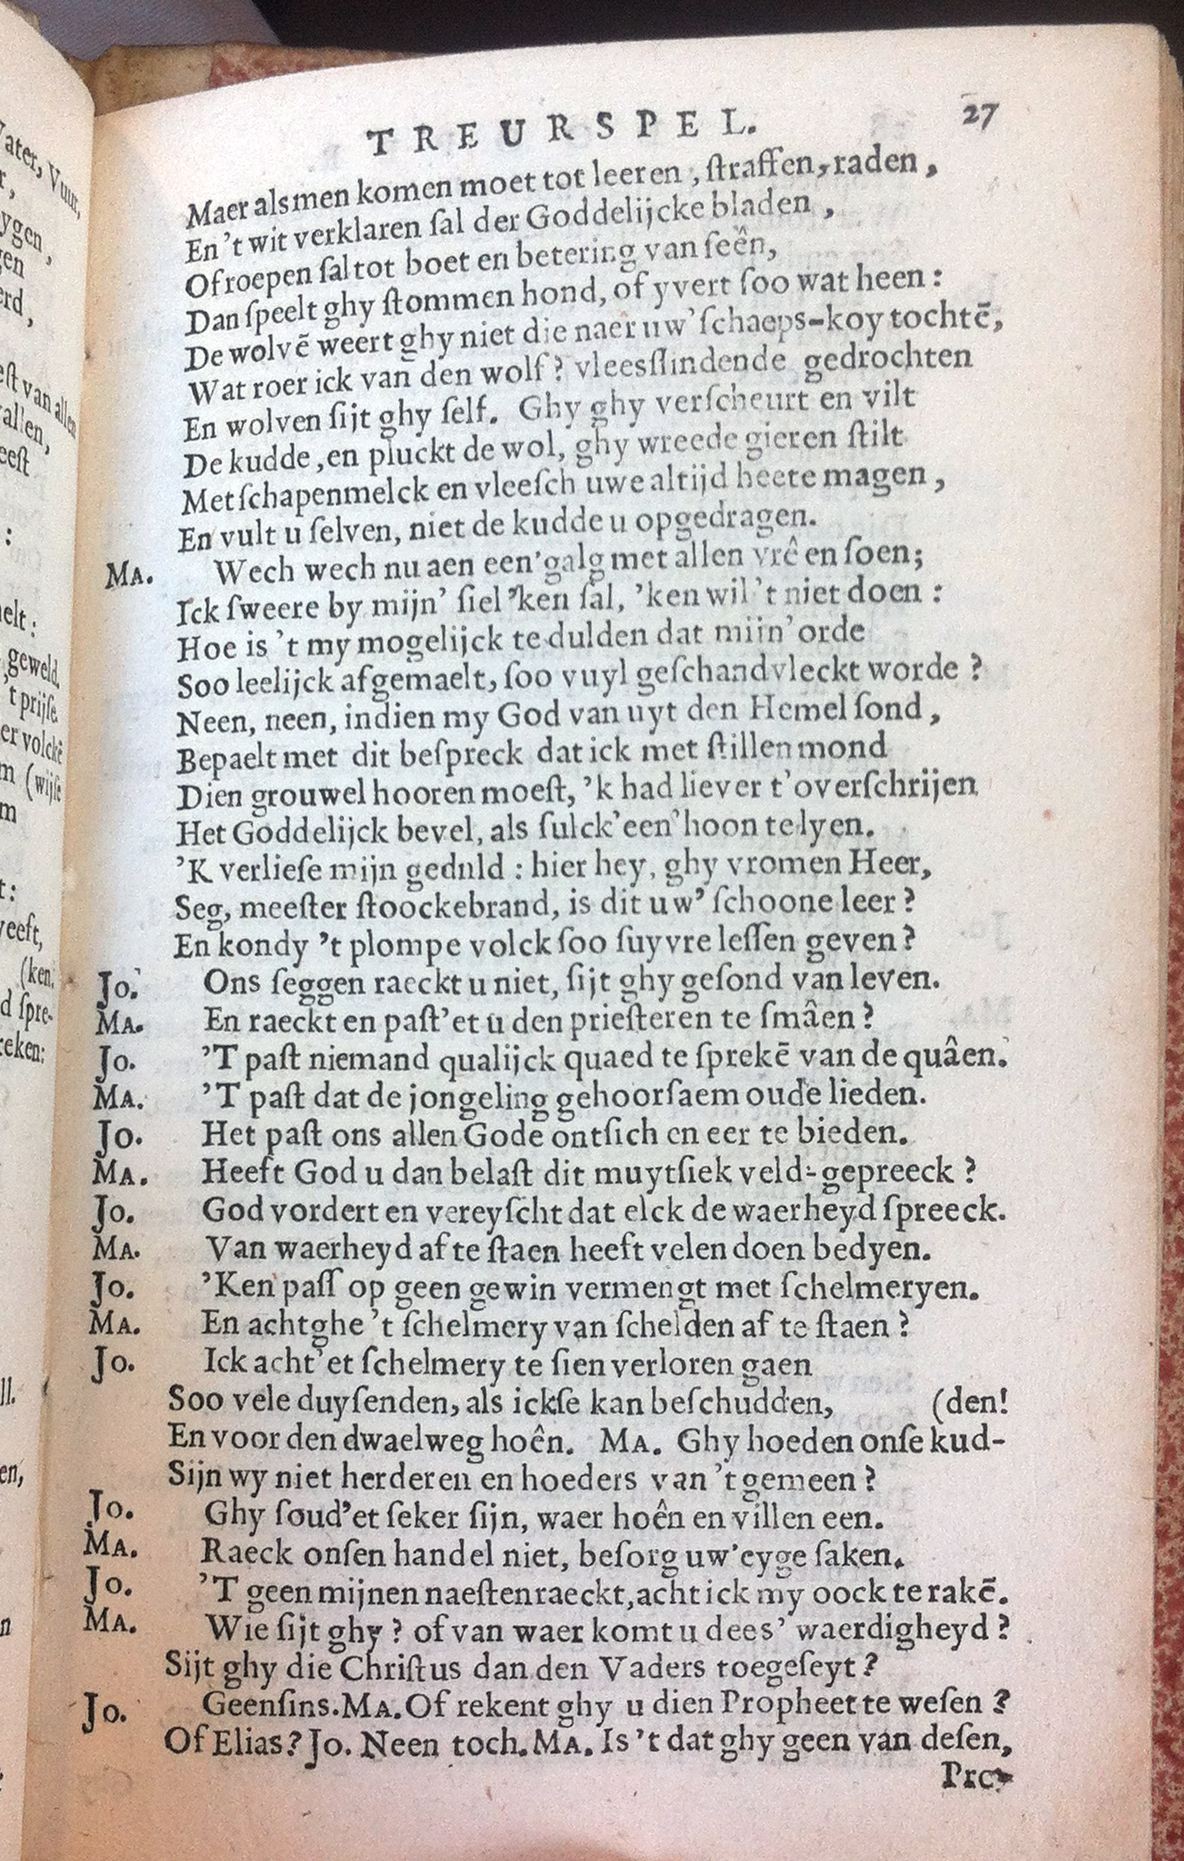 Vater, Vuur,
r,
ygen,
gen
erd,
eſt van allen
allen,
eeſt
:
elt:
geweld.
't prijſe.
er volckē
m (wijſe
m
t:
veeft,
(ken.
d ſpre-
eken:
ll.
en,
n
TREURSPEL. 27
Maer alsmen komen moet tot leeren, ſtraffen, raden,
En 't wit verklaren ſal der Goddelijcke bladen,
Of roepen ſal tot boet en betering van ſeên,
Dan ſpeelt ghy ſtommen hond, of yvert ſoo wat heen:
De wolvē weert ghy niet die naer uw' ſchaeps-koy tochtē,
Wat roer ick van den wolf? vleesſlindende gedrochten
En wolven ſijt ghy ſelf. Ghy ghy verſcheurt en vilt
De kudde, en pluckt de wol, ghy wreede gieren ſtilt
Met ſchapenmelck en vleeſch uwe altijd heete magen,
En vult u ſelven, niet de kudde u opgedragen.
MA. Wech wech nu aen een' galg met allen vrê en ſoen;
Ick ſweere by mijn' ſiel 'ken ſal, 'ken wil 't niet doen:
Hoe is 't my mogelijck te dulden dat mijn' orde
Soo leelijck afgemaelt, ſoo vuyl geſchandvleckt worde?
Neen, neen, indien my God van uyt den Hemel ſond,
Bepaelt met dit beſpreck dat ick met ſtillen mond
Dien grouwel hooren moeſt, 'k had liever t'overſchrijen
Het Goddelijck bevel, als ſulck' een' hoon te lyen.
'K verlieſe mijn geduld: hier hey, ghy vromen Heer,
Seg, meeſter ſtoockebrand, is dit uw' ſchoone leer?
En kondy 't plompe volck ſoo ſuyvre leſſen geven?
Jo. Ons ſeggen raeckt u niet, ſijt ghy geſond van leven.
MA. En raeckt en paſt'et u den prieſteren te ſmâen?
Jo. 'T paſt niemand qualijck quaed te ſprekē van de quâen.
MA. 'T paſt dat de jongeling gehoorſaem oude lieden.
Jo. Het paſt ons allen Gode ontſich en eer te bieden.
MA. Heeft God u dan belaſt dit muytſiek veld-gepreeck?
Jo. God vordert en vereyſcht dat elck de waerheyd ſpreeck.
MA. Van waerheyd af te ſtaen heeft velen doen bedyen.
Jo. 'Ken paſſ op geen gewin vermengt met ſchelmeryen.
MA. En achtghe 't ſchelmery van ſchelden af te ſtaen?
Jo. Ick acht'et ſchelmery te ſien verloren gaen
Soo vele duyſenden, als ickſe kan beſchudden, (den!
En voor den dwaelweg hoên. MA. Ghy hoeden onſe kud-
Sijn wy niet herderen en hoeders van 't gemeen?
Jo. Ghy ſoud'et ſeker ſijn, waer hoên en villen een.
MA. Raeck onſen handel niet, beſorg uw' eyge ſaken.
Jo. 'T geen mijnen naeſten raeckt, acht ick my oock te rakē.
MA. Wie ſijt ghy? of van waer komt u dees' waerdigheyd?
Sijt ghy die Chriſtus dan den Vaders toegeſeyt?
Jo. Geenſins. MA. Of rekent ghy u dien Propheet te weſen?
Of Elias? Jo. Neen toch. MA. Is 't dat ghy geen van deſen,
Pro-